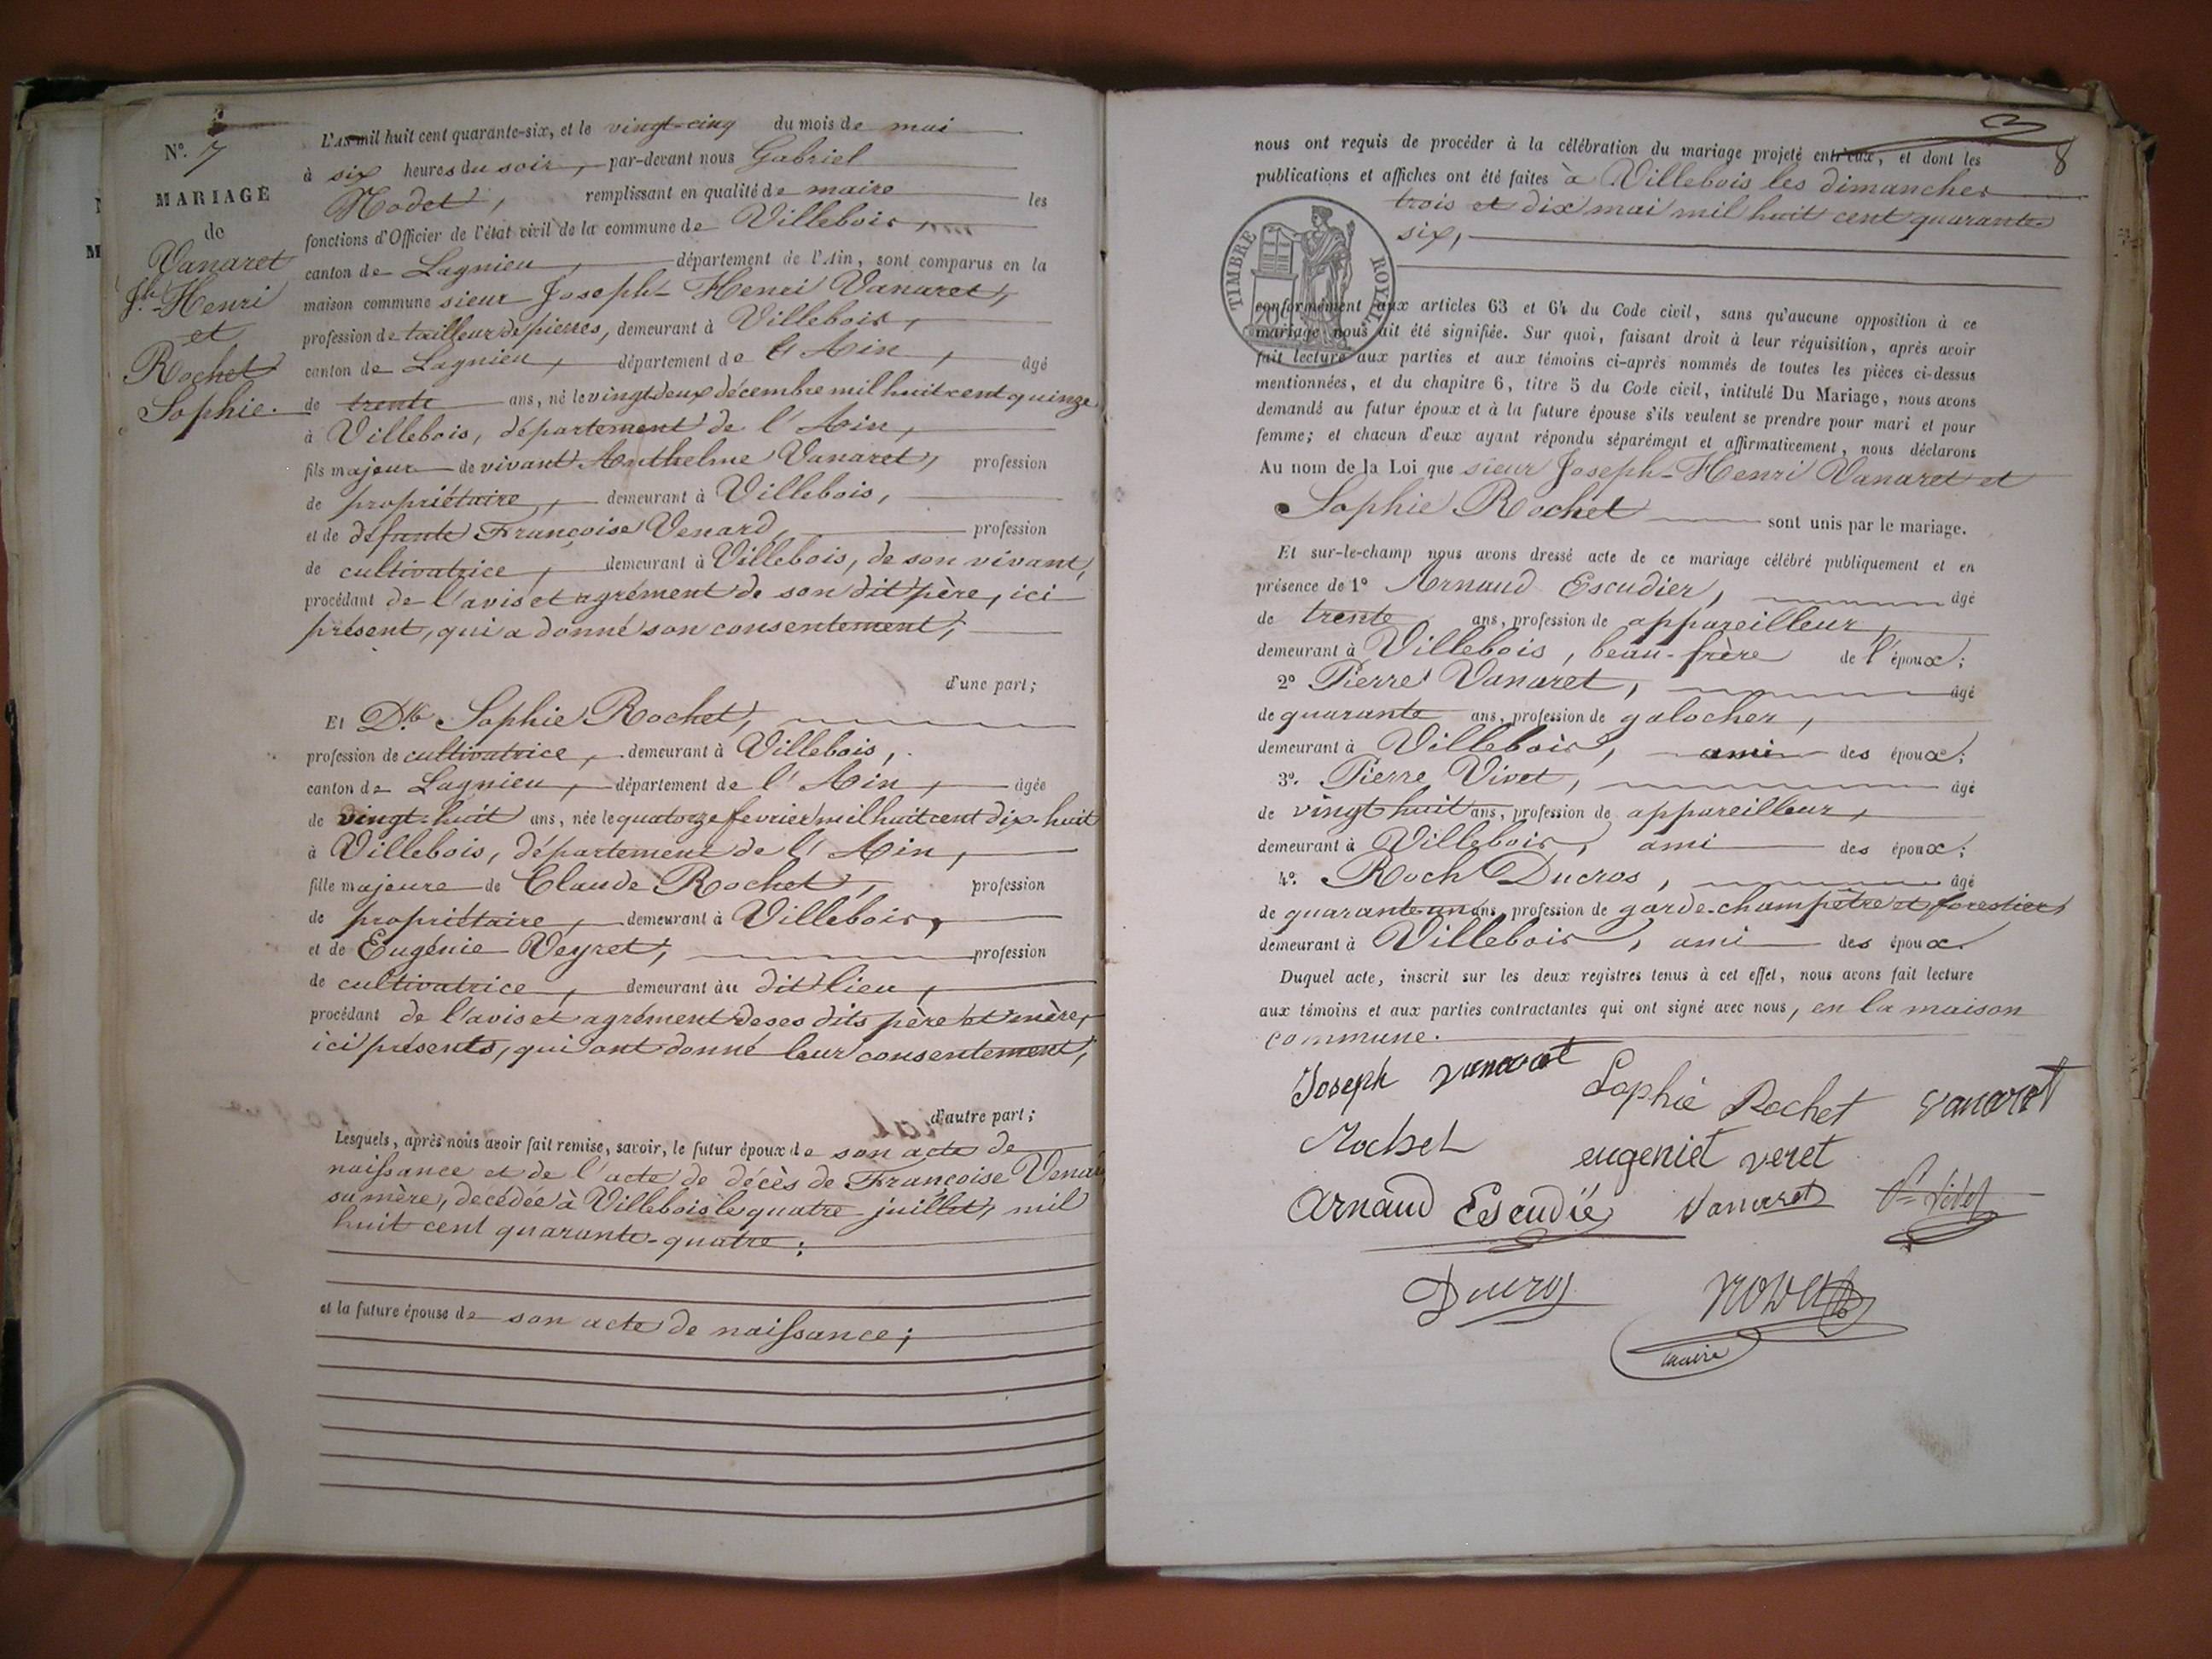 N.° 7
MARIAGE
de
Vanaret
J.h Henri
et
Rochet
Sophie.
L'AN mil huit cent quarante-six, et le vingt-cinq du mois de mai
à six heures du soir, par-devant nous Gabriel
Nodet, remplissant en qualité de maire les
fonctions d'Officier de l'état civil de la commune de Villebois,
canton de Lagnieu, département de l'Ain, sont comparus en la
maison commune sieur Joseph-Henri Vanaret,
profession de tailleur de pierres, demeurant à Villebois,
canton de Lagnieu, département de l'Ain, âgé
de trente ans, né le vingt deux décembre mil huit cent quinze
à Villebois, département de l'Ain,
fils majeur de vivant Anthelme Vanaret, profession
de propriétaire, demeurant à Villebois,
et de défunte Françoise Venard, profession
de cultivatrice, demeurant à Villebois, de son vivant,
procédant de l'avis et agrément de son dit père, ici
présent, qui a donné son consentement,
d'une part;
Et D.lle Sophie Rochet,
profession de cultivatrice, demeurant à Villebois,
canton de Lagnieu, département de l'Ain, âgée
de vingt-huit ans, née le quatorze fevrier mil huit cent dix-huit
à Villebois, département de l'Ain,
fille majeure de Claude Rochet, profession
de propriétaire, demeurant à Villebois,
et de Eugénie Veyret, profession
de cultivatrice, demeurant àu dit lieu,
procédant de l'avis et agrément de ses dits père et mère,
ici présents, qui ont donné leur consentement,
d'autre part;
Lesquels, après nous avoir fait remise, savoir, le futur époux de son acte de
naissance et de l'acte de décès de Françoise Venard
sa mère, decédée à Villebois le quatre juillet, mil
huit cent quarante-quatre;
et la future épouse de son acte de naissance;
8
nous ont requis de procéder à la célébration du mariage projeté entr'eux, et dont les
publications et affiches ont été faites à Villebois les dimanches
trois et dix mai mil huit cent quarante
six,
TIMBRE ROYAL
conformément aux articles 63 et 64 du Code civil, sans qu'aucune opposition à ce
mariage nous ait été signifiée. Sur quoi, faisant droit à leur réquisition, après avoir
fait lecture aux parties et aux témoins ci-après nommés de toutes les pièces ci-dessus
mentionnées, et du chapitre 6, titre 5 du Code civil, intitulé Du Mariage, nous avons
demandé au futur époux et à la future épouse s'ils veulent se prendre pour mari et pour
femme; et chacun d'eux ayant répondu séparément et affirmativement, nous déclarons
Au nom de la Loi que sieur Joseph-Henri Vanaret et
Sophie Rochet sont unis par le mariage.
Et sur-le-champ nous avons dressé acte de ce mariage célébré publiquement et en
présence de 1° Arnaud Escudier, âgé
de trente ans, profession de appareilleur,
demeurant à Villebois, beau-frère de l'époux;
2° Pierre Vanaret, âgé
de quarante ans, profession de galocher,
demeurant à Villebois, ami des époux;
3°. Pierre Vivet, âgé
de vingt huit ans, profession de appareilleur,
demeurant à Villebois, ami des époux;
4°. Roch Ducros, âgé
de quarante-un ans, profession de garde-champêtre et forestier
demeurant à Villebois, ami des époux.
Duquel acte, inscrit sur les deux registres tenus à cet effet, nous avons fait lecture
aux témoins et aux parties contractantes qui ont signé avec nous, en la maison
commune.
Joseph vanaret Sophie Rochet vanaret
Rochet eugeniet veret
Arnaud Escudié Vanaret P.re Vivet
Ducros Nodet
maire